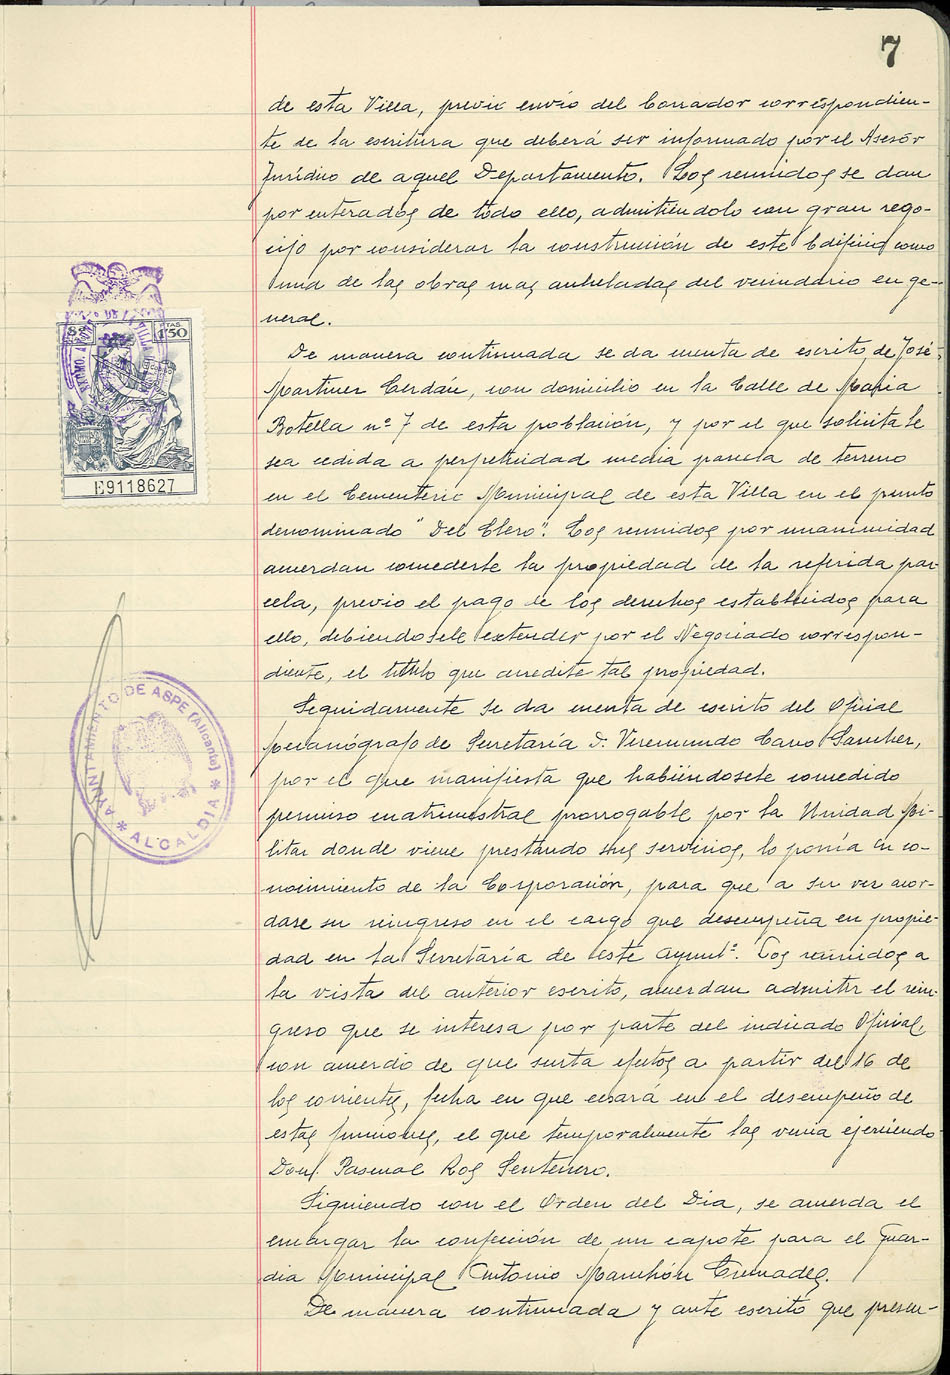 7
de esta Villa, previo envío del borrador correspondien-
te de la escritura que deberá ser informado por el Asesór
Jurídico de aquel Departamento. Los reunidos se dan
por enterados de todo ello, admitiéndolo con gran rego-
cijo por considerar la construcción de este Edificio como
una de las obras mas anheladas del vecindario en ge-
neral.
De manera continuada se da cuenta de escrito de José
Martinez Cerdán, con domicilio en la Calle de Maria
Botella nº 7 de esta población, y por el que solicita le
sea cedida a perpetuidad media parcela de terreno
en el Cementerio Municipal de esta Villa en el punto
denominado "Del Clero". Los reunidos por unanimidad
acuerdan concederle la propiedad de la referida par-
cela, previo el pago de los derechos establecidos para
ello, debiendosele extender por el Negociado correspon-
diente, el título que acredite tal propiedad.
Seguidamente se da cuenta de escrito del Oficial
mecanógrafo de Secretaría D. Veremundo Cano Sanchez,
por el que manifiesta que habiéndosele concedido
permiso cuatrimestral prorrogable por la Unidad Mi-
litar donde viene prestando sus servicios, lo ponía en co-
nocimiento de la Corporación, para que a su vez acor-
dase su reingreso en el cargo que desempeña en propie-
dad en la Secretaría de este Ayuntº. Los reunidos a
la vista del anterior escrito, acuerdan admitir el rein-
greso que se interesa por parte del indicado Oficial,
con acuerdo de que surta efectos a partir del 16 de
los corrientes, fecha en que cesará en el desempeño de
estas funciones, el que temporalmente las venia ejerciendo
Don Pascual Ros Sentenero.
Siguiendo con el Orden del Dia, se acuerda el
encargar la confección de un capote para el Guar-
dia Municipal Antonio Manchón Cremades.
De manera continuada y ante escrito que presen-
8ª
PTAS.
1'50
E9118627
AYUNTAMIENTO DE ASPE (Alicante)
* ALCALDIA *